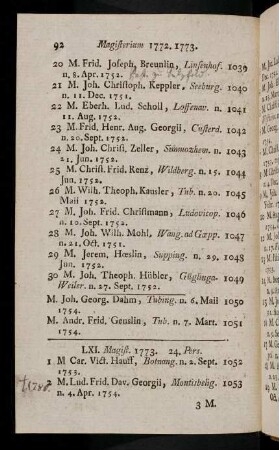 92 Magisterium 1772. 1773.
20 M. Frid. Joseph, Breunlin, Linsenhof. 1039
n. 8. Apr. 1752.
21 M. Joh. Christoph. Keppler, Seeburg. 1040
n. 11. Dec. 1751.
22 M. Eberh. Lud. Scholl, Loffenav. n. 1041
11 Aug. 1752.
23 M. Frid. Henr. Aug. Georgii, Custerd. 1042
n. 20. Sept. 1752.
24 M. Joh. Christi. Zeller, Simmozhem. n. 1043
21. Jun. 1752.
25 M. Christ. Frid. Renz, Wildberg. n. 15. 1044
Jun. 1752.
26 M. Wilh. Theoph. Kausler, Tub. n. 20. 1045
Maii 1752.
27 M. Joh. Frid. Christmann, Ludovicop. 1046
n. 10. Sept. 1752.
28 M. Joh. Wilh. Mohl, Wang. ad Gœpp. 1047
n. 21. Oct. 1751.
29 M. Jerem. Hœslin, Supping. n. 29. 1048
Jun. 1752.
30 M. Joh. Theoph. Hübler, Güglinga- 1049
Weiler. n. 27. Sept. 1752.
M. Joh. Georg. Dahm, Tubing. n. 6. Maii 1050
1754.
M. Andr. Frid. Genslin, Tub. n. 7. Mart. 1051
1754.
LXI. Magist. 1773. 24. Pers.
1 M Car. Vict. Hauff, Botnang. n. 2. Sept. 1052
1753.
2 M. Lud. Frid. Dav. Georgii, Montisbelig. 1053
n. 4. Apr. 1754.
3 M.